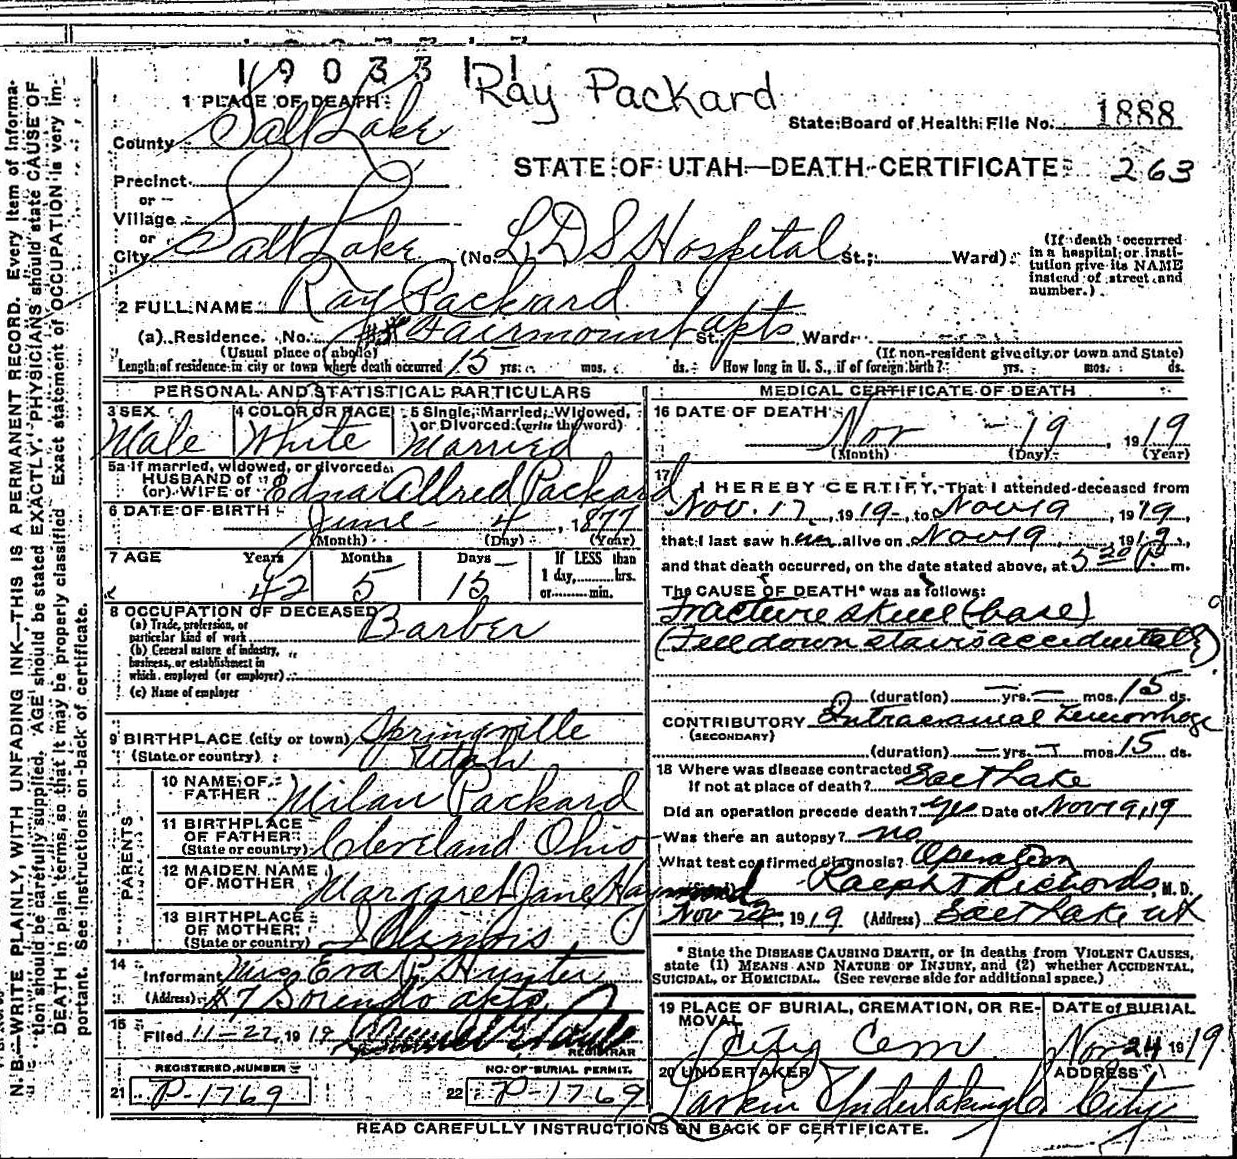 1903311
Ray Packard
1 PLACE OF DEATH
State Board of Health File No. 1888
County Salt Lake
STATE OF UTAH—DEATH CERTIFICATE 263
Precinct
or
Village
or
City Salt Lake (No. L D S Hospital St.; Ward)
(If death occurred in a hospital or institution give its NAME instead of street and number.)
2 FULL NAME Ray Packard
(a) Residence. No. Fairmount apts St. Ward
(Usual place of abode) (If non-resident give city or town and State)
Length of residence in city or town where death occurred 15 yrs. mos. ds. How long in U. S., if of foreign birth? yrs. mos. ds.
PERSONAL AND STATISTICAL PARTICULARS
3 SEX Male
4 COLOR OR RACE White
5 Single, Married, Widowed, or Divorced (write the word) Married
5a If married, widowed, or divorced
HUSBAND of
(or) WIFE of Edna Allred Packard
6 DATE OF BIRTH June 4, 1877
(Month) (Day) (Year)
7 AGE Years Months Days If LESS than
42 5 15 1 day, hrs.
or min.
8 OCCUPATION OF DECEASED
(a) Trade, profession, or particular kind of work Barber
(b) General nature of industry, business, or establishment in which employed (or employer)
(c) Name of employer
9 BIRTHPLACE (city or town) Springville
(State or country) Utah
PARENTS
10 NAME OF FATHER Milan Packard
11 BIRTHPLACE OF FATHER (State or country) Cleveland Ohio
12 MAIDEN NAME OF MOTHER Margaret Jane Haymond
13 BIRTHPLACE OF MOTHER (State or country) Illinois
14 Informant Mrs Eva P. Hunter
(Address) #7 Sorendo apts
15 Filed 11-22, 1919
REGISTRAR
REGISTERED NUMBER
21 P-1769
NO. OF BURIAL PERMIT.
22 P-1769
MEDICAL CERTIFICATE OF DEATH
16 DATE OF DEATH Nov - 19, 1919
(Month) (Day) (Year)
17 I HEREBY CERTIFY, That I attended deceased from
Nov. 17, 1919, to Nov 19, 1919,
that I last saw him alive on Nov 19, 1919,
and that death occurred, on the date stated above, at 5 20 P. m.
The CAUSE OF DEATH* was as follows:
Fracture skull (base)
(Fell down stairs accidentally)
(duration) — yrs. — mos. 15 ds.
CONTRIBUTORY Intracranial Hemorrhage
(SECONDARY)
(duration) — yrs. — mos. 15 ds.
18 Where was disease contracted
If not at place of death? Salt Lake
Did an operation precede death? yes Date of Nov 19, 19
Was there an autopsy? no
What test confirmed diagnosis? Operation
Ralph T Richards, M. D.
Nov 22, 1919 (Address) Salt Lake Ut
* State the DISEASE CAUSING DEATH, or in deaths from VIOLENT CAUSES, state (1) MEANS AND NATURE OF INJURY, and (2) whether ACCIDENTAL, SUICIDAL, or HOMICIDAL. (See reverse side for additional space.)
19 PLACE OF BURIAL, CREMATION, OR REMOVAL City Cem
DATE OF BURIAL Nov 24 1919
20 UNDERTAKER Larkin Undertaking Co
ADDRESS City
READ CAREFULLY INSTRUCTIONS ON BACK OF CERTIFICATE.
N. B.—WRITE PLAINLY, WITH UNFADING INK—THIS IS A PERMANENT RECORD. Every item of information should be carefully supplied. AGE should be stated EXACTLY. PHYSICIANS should state CAUSE OF DEATH in plain terms, so that it may be properly classified. Exact statement of OCCUPATION is very important. See instructions on back of certificate.